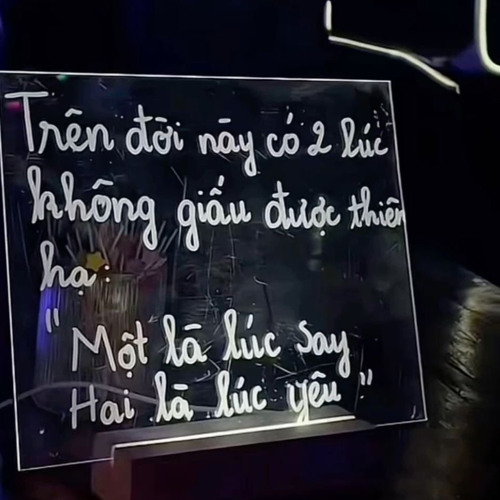 Trên đời này có 2 lúc
không giấu được thiên
hạ:
"Một là lúc say
Hai là lúc yêu"